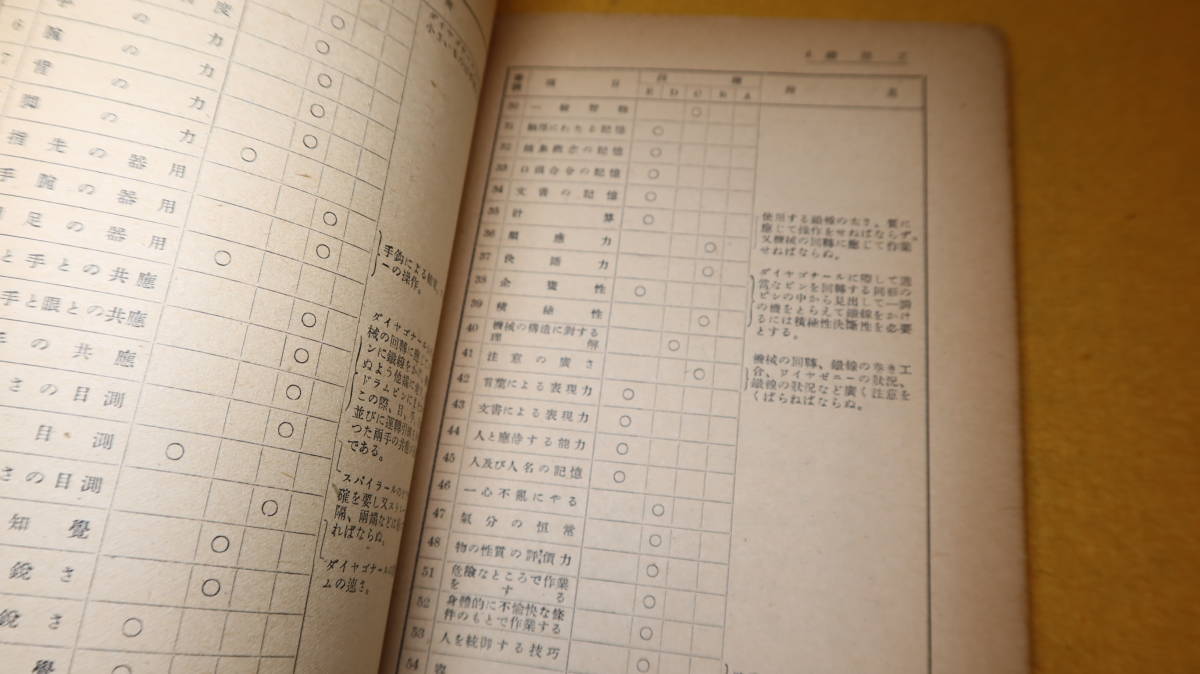 度
手の力
6 腕の力
7 背の力
脚の力
指先の器用
手腕の器用
足の器用
と手との共應
手と眼との共應
手の共應
さの目測
目測
さの目測
知覺
鋭さ
鋭さ
覺
ダイヤゴナ
小さい
手鈎による
ーの操作。
ダイヤゴナール
械の回轉に應じ
ンに鐵線をか
ぬよう他端に
ドラムピンにま
この際、目、手
並びに運轉引
つた兩手の共應
である。
スパイラールの
確を要し又スト
隔、兩端などに
ればならぬ。
ダイヤゴナール
ムの速さ。
項目 E D C B A
30 一般智能
31 細部にわたる記憶
32 抽象概念の記憶
33 口頭命令の記憶
34 文書の記憶
35 計算
36 順應力
37 決語力
38 企畫性
39 積極性
40 機械の構造に對する理解
41 注意の廣さ
42 言葉による表現力
43 文書による表現力
44 人と應待する能力
45 人及び人名の記憶
46 一心不亂にやる
47 氣分の恒常
48 物の性質の評價力
51 危險なところで作業をする
52 身體的に不愉快な條件のもとで作業する
53 人を統御する技巧
54 容
使用する鐵線の太さ、質に
應じて操作をせねばならず。
又機械の回轉に應じて作業
せねばならぬ。
ダイヤゴナールに即して適
當なピンを回轉する同形の
ピンの中から見出して一瞬
の機をとらえて鐵線をかけ
るには積極性決斷性を必要
とする。
機械の回轉、鐵線の巻き工
合、ワイヤゼニーの狀況、
鐵線の狀況など廣く注意を
くばらねばならぬ。